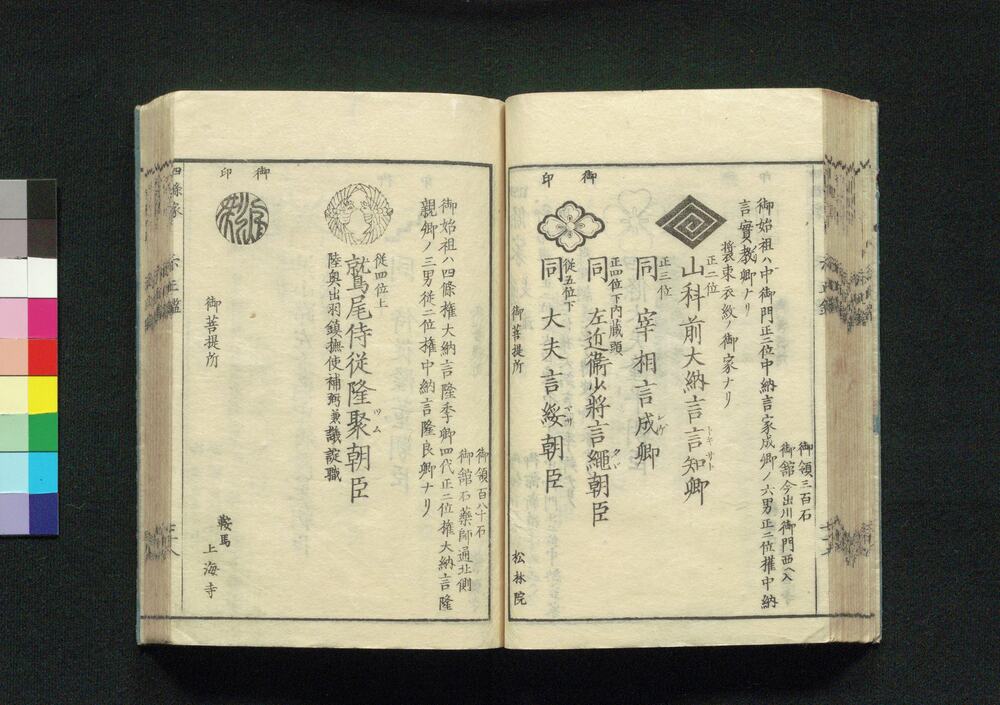 御領三百石
御舘今出川御門西ヘ入
御始祖ハ中御門正二位中納言家成卿ノ六男正二位権中納
言實教卿ナリ
装束衣紋ノ御家ナリ
正二位
山科前大納言言知卿
トキサト
正三位
同宰相言成卿
ナゲ
正四位下内蔵頭
同左近衛少將言繩朝臣
従五位下
同大夫言綏朝臣
御印
御菩提所
松林院
御領百八十石
御舘石藥師通北側
御始祖ハ四條権大納言隆季卿四代正二位権大納言隆
親卿ノ三男従二位権中納言隆良卿ナリ
従四位上
鷲尾侍従隆聚朝臣
ツム
陸奥出羽鎮撫使補輔兼議諚職
御印
御菩提所
鞍馬
上海寺
四條家